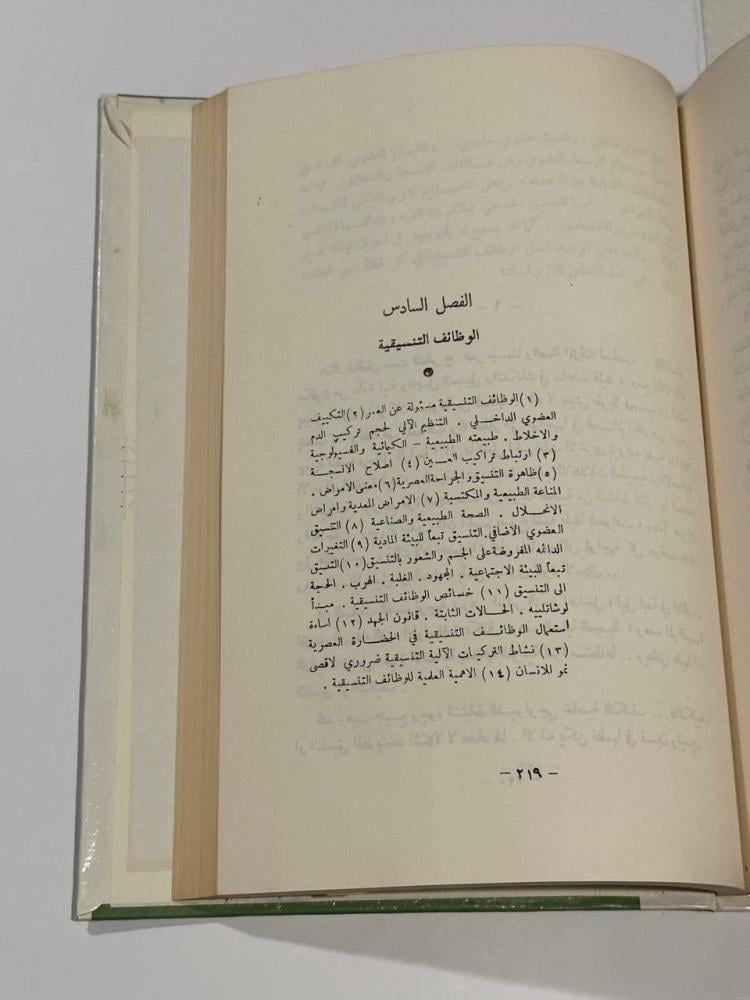 الفصل السادس
الوظائف التنسيقية
(١) الوظائف التنسيقية مسئولة عن العمر (٢) التكييف
العضوي الداخلي . التنظيم الآلي لحجم تركيب الدم
والاخلاط . طبيعته الطبيعية – الكيائية والفسيولوجية
(٣) ارتباط تراكيب العــين (٤) اصلاح الانسجـة
(٥) ظاهرة التنسيق والجراحة العصرية (٦) معنى الامراض .
المناعة الطبيعية والمكتسبة (٧) الامراض المعدية وامراض
الانحلال . الصحة الطبيعية والصناعية (٨) التنسيق
العضوي الاضافي. التنسيق تبعاً للبيئة المادية (٩) التغيرات
الدائمه المفروضة على الجسم والشعور بالتنسيق (١٠) التنسيق
تبعاً للبيئة الاجتماعية . المجهود . الغلبة . الهرب . الحجة
الى التنسيق (١١) خصائص الوظائف التنسيقية . مبـدأ
لوشاتلييه . الحالات الثابتة . قانون الجهد (١٢) اساءة
استعمال الوظائـف التنسيقية في الحضارة العصرية
(١٣) نشاط التركيبات الآلية التنسيقية ضروري لاقصى
نمو للانسان (١٤) الاهمية العلمية للوظائف التنسيقية .
– ٢١٩ –